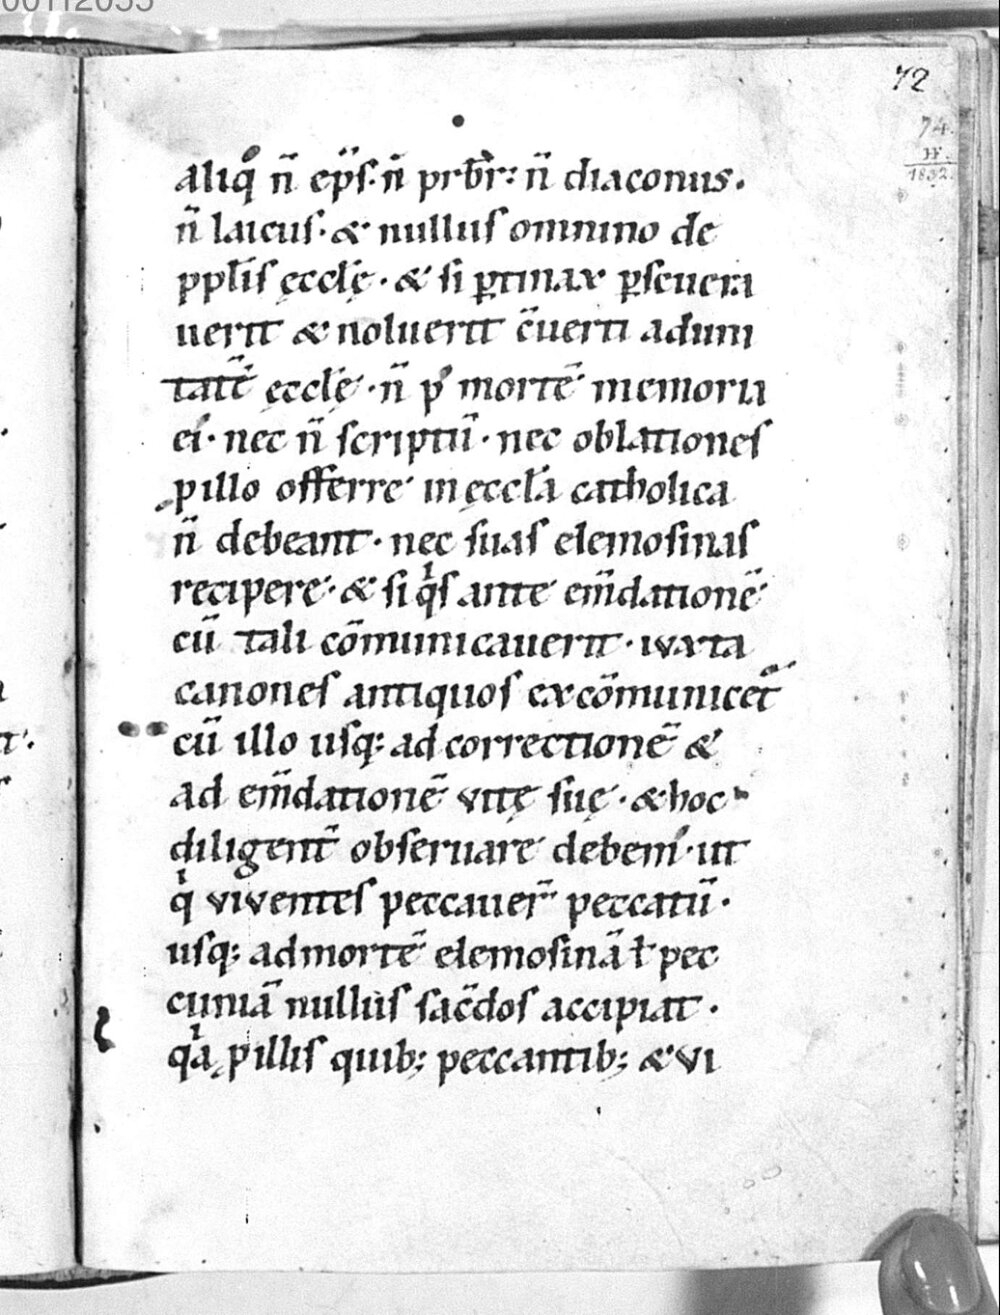 00112055
72
74.
H.
1832.
aliqͦ n̄ ep̄s· n̄ prb̄r: n̄ diaconus.
n̄ laicus· & nullus omnino de
ppłis ęcclę̄· & si ꝑtinax ꝑseuera
uerit & noluerit c̄uerti aduni
tatē ęcclę̄· n̄ p᷒ mortē memoria
ei᷒· nec n̄ scriptū· nec oblationes
ꝓ illo offerre in ęccła catholica
n̄ debeant· nec suas elemosinas
recipere· & si qͥs ante em̄dationē
cū tali cōmunicauerit· iuxta
canones antiquos excōmunicet᷑
cū illo usq; ad correctionē &
ad em̄dationē vitę suę· & hoc
diligent̄ obseruare debem᷒· ut
qͥ viventes peccauer̄ peccatū·
usq; admortē elemosinā ł pec
cuniā nullus sac̄dos accipiat·
qͥa ꝓ illis quib; peccantib; & vi